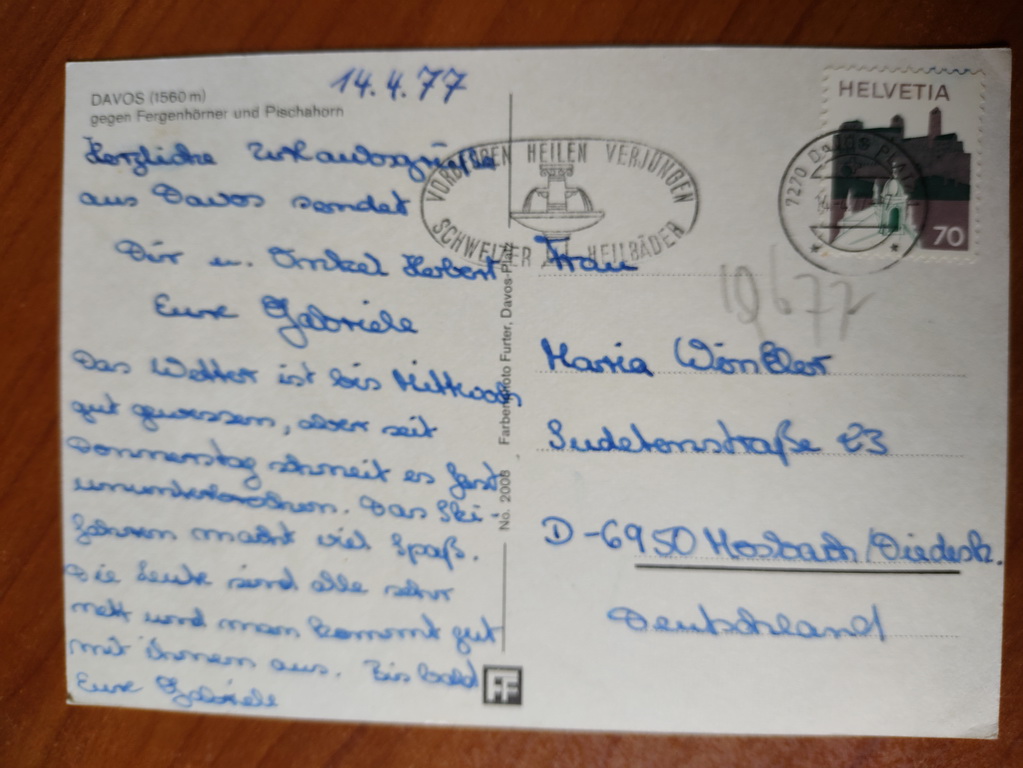 DAVOS (1560 m)
gegen Fergenhörner und Pischahorn
14.4.77
Herzliche Urlaubsgrüße
aus Davos sendet
Dir u. Onkel Herbert
Eure Gabriele
Das Wetter ist bis Mittwoch
gut gewesen, aber seit
Donnerstag schneit es fast
ununterbrochen. Das Ski-
fahren macht viel Spaß.
Die Leute sind alle sehr
nett und man kommt gut
mit ihnen aus. Bis bald
Eure Gabriele
No. 2008 Farbenfoto Furter, Davos-Platz
FF
VORBEUGEN HEILEN VERJÜNGEN
SCHWEIZER HEILBÄDER
7270 DAVOS PLATZ
HELVETIA
70
Frau
Maria Winkler
Sudetenstraße 23
D-6950 Mosbach/Diedesh.
Deutschland